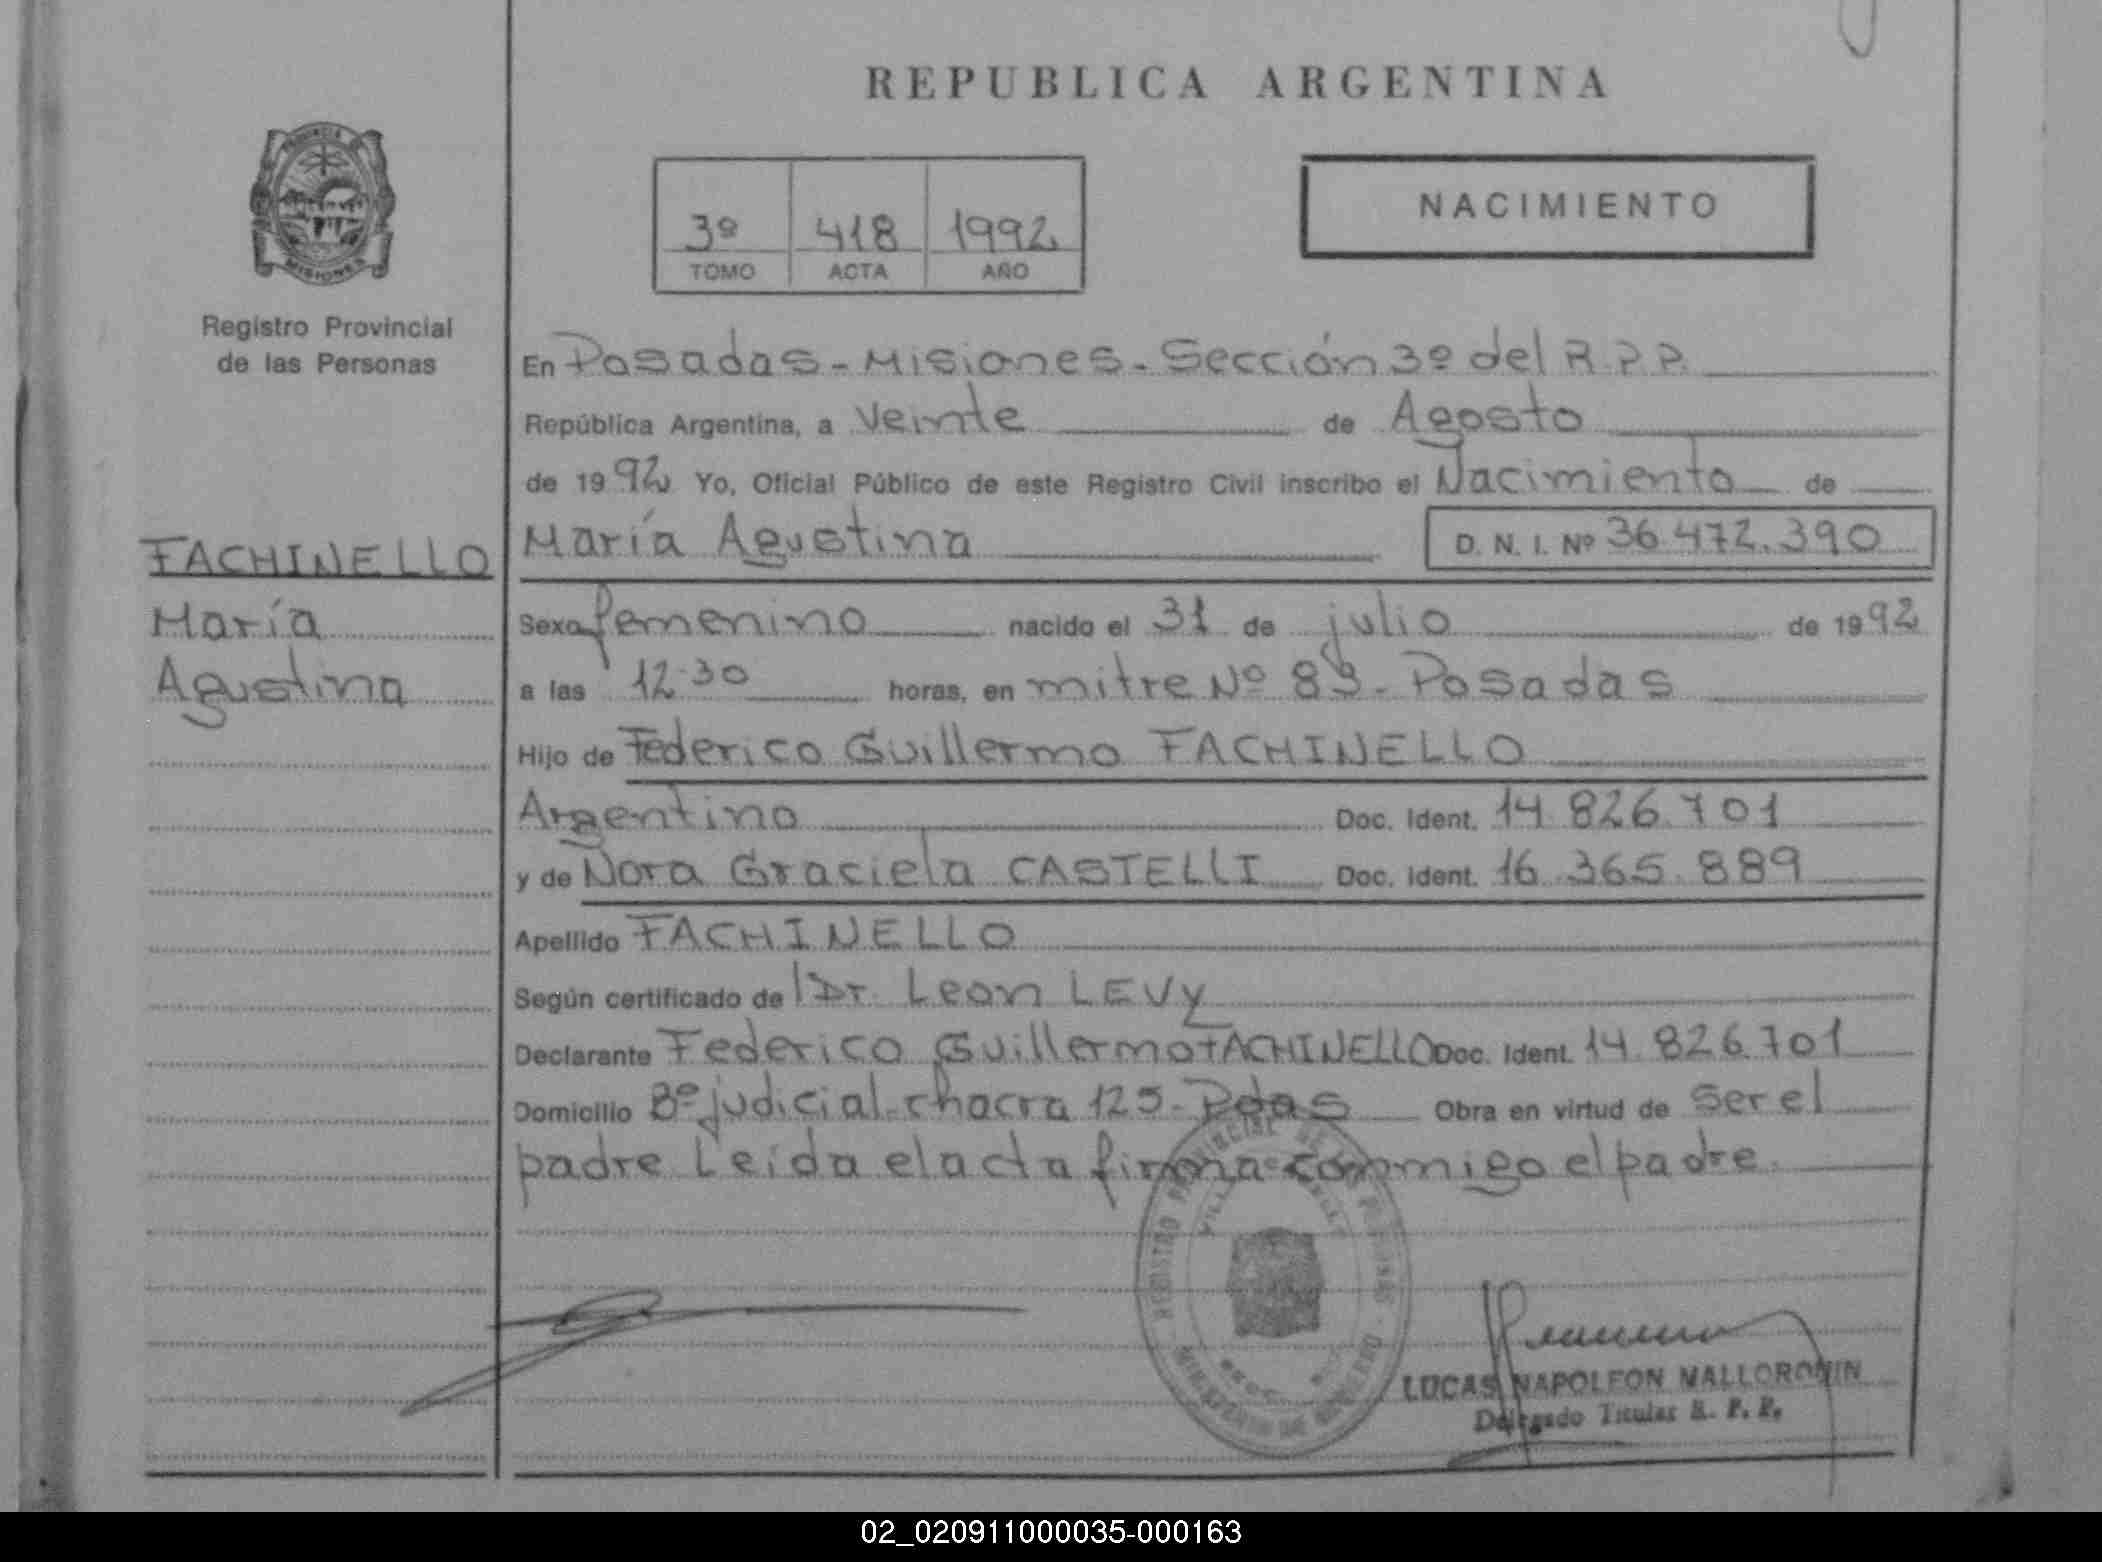 REPUBLICA ARGENTINA
PROVINCIA
MISIONES
Registro Provincial
de las Personas
3º 418 1992
TOMO ACTA AÑO
NACIMIENTO
En Posadas - Misiones - Sección 3º del R.P.P.
República Argentina, a Veinte de Agosto
de 1992 Yo, Oficial Público de este Registro Civil inscribo el Nacimiento de
FACHINELLO
María
Agustina
María Agustina D. N. I. Nº 36.472.390
Sexo femenino nacido el 31 de julio de 1992
a las 12.30 horas, en mitre Nº 83 - Posadas
Hijo de Federico Guillermo FACHINELLO
Argentino Doc. Ident. 14.826.701
y de Nora Graciela CASTELLI Doc. Ident. 16.365.889
Apellido FACHINELLO
Según certificado de Dr. Leon LEVY
Declarante Federico Guillermo FACHINELLO Doc. Ident. 14.826.701
Domicilio Bº judicial - chacra 125 - Pdas Obra en virtud de Ser el
padre Leida el acta firma conmigo el padre.
REGISTRO PROVINCIAL DE LAS PERSONAS
LUCAS NAPOLEON MALLORQUIN
Delegado Titular R. P. P.
02_020911000035-000163